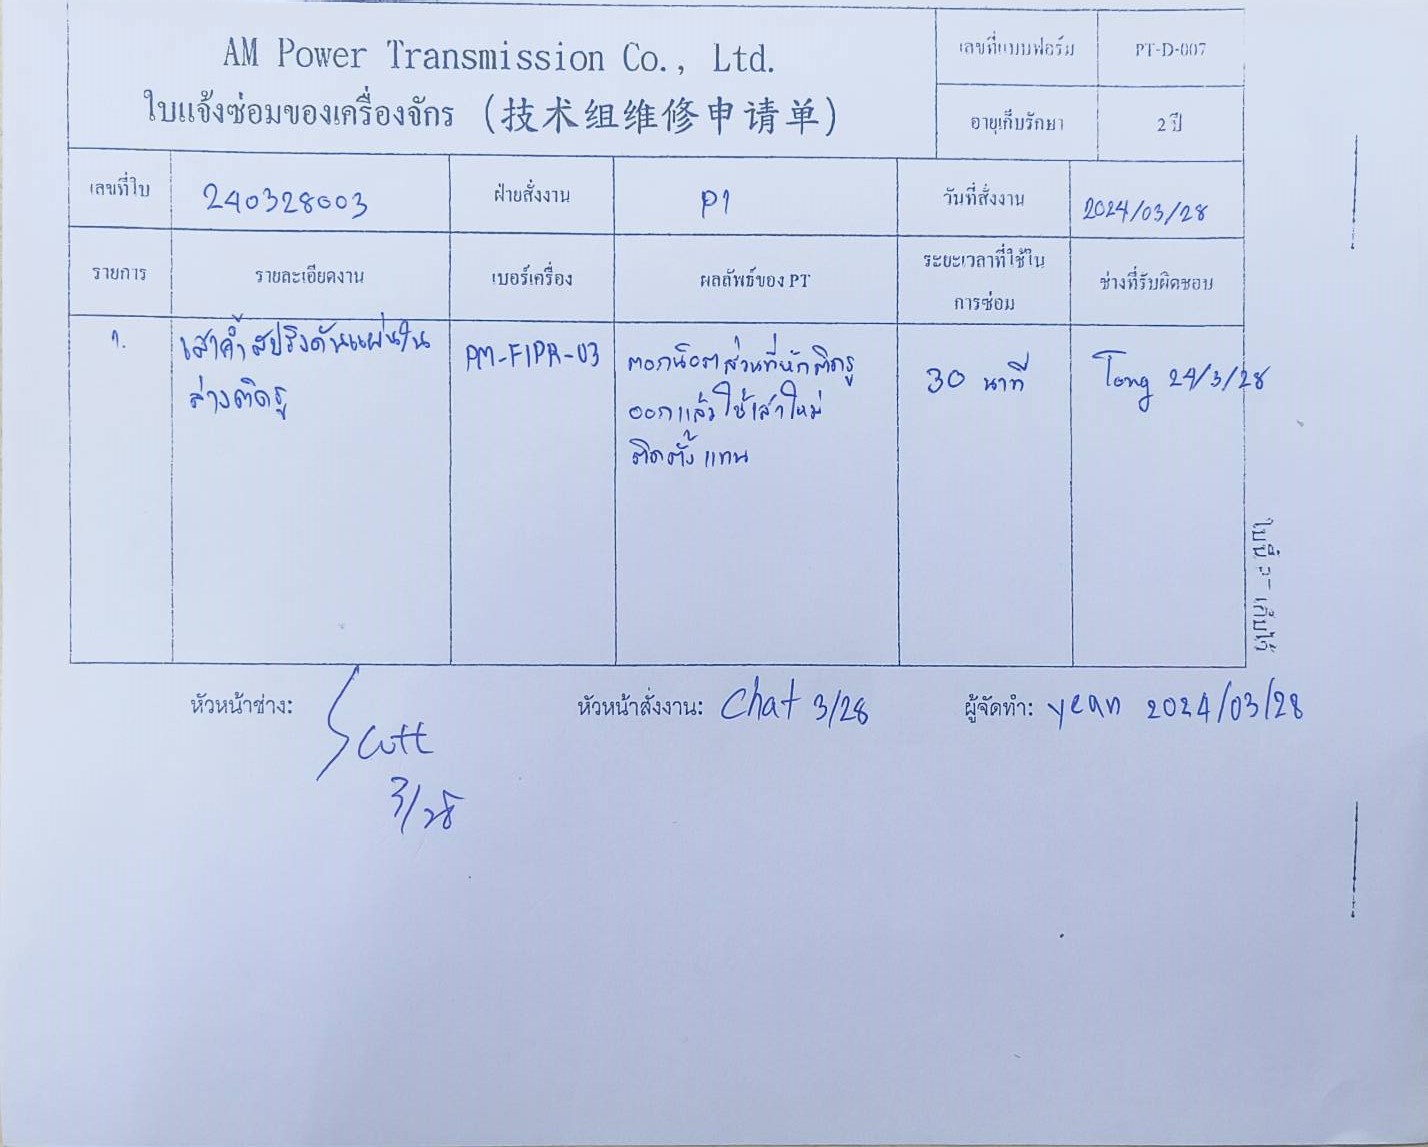 AM Power Transmission Co., Ltd.
ใบแจ้งซ่อมของเครื่องจักร (技术组维修申请单)
เลขที่แบบฟอร์ม PT-D-007
อายุเก็บรักษา 2 ปี
เลขที่ใบ 240328003 ฝ่ายสั่งงาน P1 วันที่สั่งงาน 2024/03/28
รายการ รายละเอียดงาน เบอร์เครื่อง ผลลัพธ์ของ PT ระยะเวลาที่ใช้ใน
การซ่อม
ช่างที่รับผิดชอบ
1. เสาค้ำสปริงดันแผ่นใน
ล่างติดรู
PM-F1PR-03
ตอกน็อตส่วนที่หักติดรู
ออกแล้วใช้เสาใหม่
ติดตั้งแทน
30 นาที
Tong 24/3/28
หัวหน้าช่าง: Scott
3/28
หัวหน้าสั่งงาน: Chat 3/28
ผู้จัดทำ: yean 2024/03/28